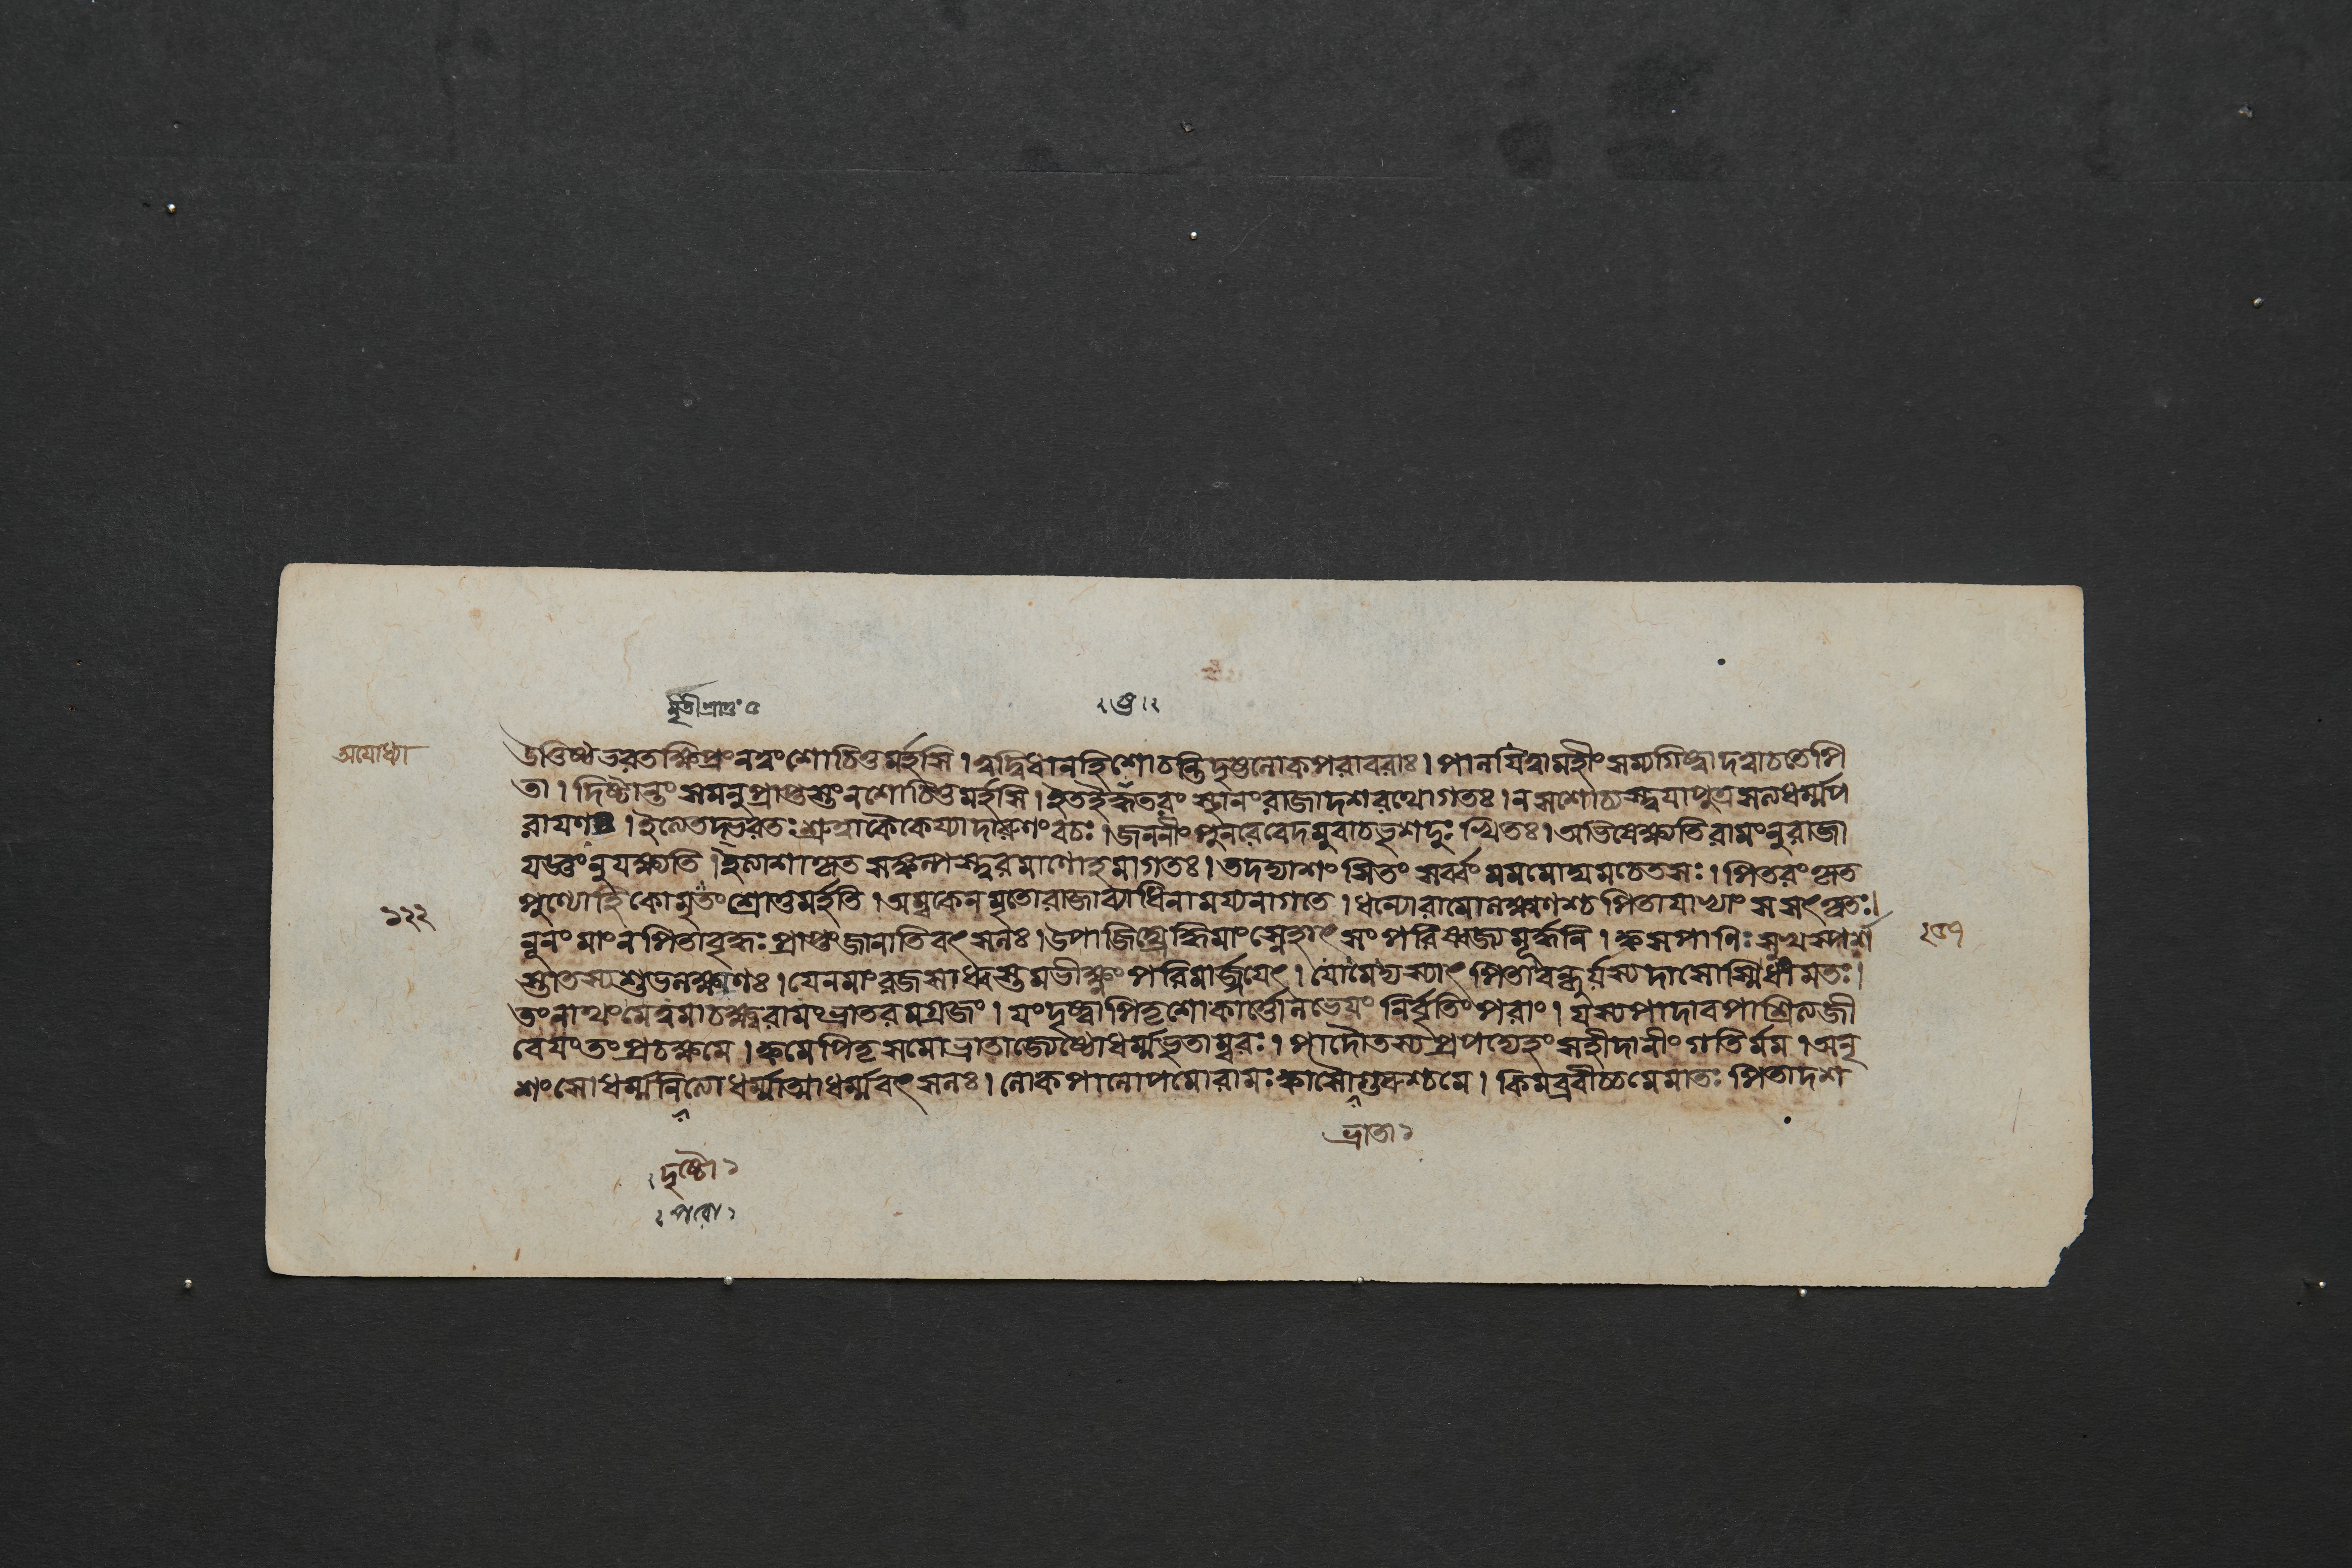 অযোধ্যা
উত্তিষ্ঠ ভরত ক্ষিপ্রং নত্বং শোচিতুমর্হসি । ত্বদ্বিধা নহি শোচন্তি দৃষ্টলোকপরাবরাঃ । পালয়িত্বা মহীং সম্যগিষ্ট্বা দত্বা চ তে পি
তা । দিষ্টান্তং সমনুপ্রাপ্তস্তং ন শোচিতুমর্হসি । স্থানং রাজা দশরথো গতঃ । ন স শোচ্যস্ত্বয়া পুত্র সত্যধর্ম্মপ
রায়ণঃ । ইত্যেতদ্ভরতঃ শ্রুত্বা কৈকেয্যা দারুণং বচঃ । জননীং পুনরেবেদমুবাচ ভৃশদুঃখিতঃ । অভিষেক্ষ্যতি রামং নু রাজা
যজ্ঞং নু যক্ষ্যতি । তদদ্যাশংসিতং সর্ব্বং মম মোঘমচেতসঃ । পিতরং হৃত
পুণ্যো হি কো মৃতং শ্রোতুমর্হতি । অম্ব কেন মৃতো রাজা ব্যাধিনা ময্যনাগতে । ধন্যো রামো লক্ষ্মণশ্চ পিতা যাভ্যাং স সংস্কৃতঃ ।
১২২
নূনং মাং ন পিতা বৃদ্ধঃ প্রাপ্তং জানাতি বৎসলঃ । উপাজিঘ্রেদ্ধি মাং স্নেহাৎ সংপরিষ্বজ্য মূর্দ্ধনি । ক্ব স পাণিঃ সুখস্পর্শ
স্তাতস্য শুভলক্ষণঃ । যেন মাং রজসা ধ্বস্তমভীক্ষ্ণং পরিমার্জ্জয়েৎ । যো মে দ্যস্যাৎ পিতা বন্ধুর্যস্য দাসোস্মি ধীমতঃ ।
তং নাথং মে ত্বমাচক্ষ্ব রামং ভ্রাতরমগ্রজং । যং দৃষ্ট্বা পিতৃশোকার্ত্তো লভেয়ং নির্বৃতিং পরাং । যস্য পাদাবপাশ্রিত্য জী
বেয়ং তং প্রচক্ষ্ব মে । ক্ব মে পিতৃসমো ভ্রাতা জ্যেষ্ঠো ধর্ম্মভৃতাম্বরঃ । পাদৌ তস্য প্রপদ্যেহং সহীদানীং গতির্মম । অনৃ
শংসো ধর্ম্মনিত্যো ধর্ম্মাত্মা ধর্ম্মবৎসলঃ । লোকপালোপমো রামঃ ক্বাসৌ গুরুশ্চ মে । কিমব্রবীচ্চ মে মাতঃ পিতা দশ
ভ্রাতা ১